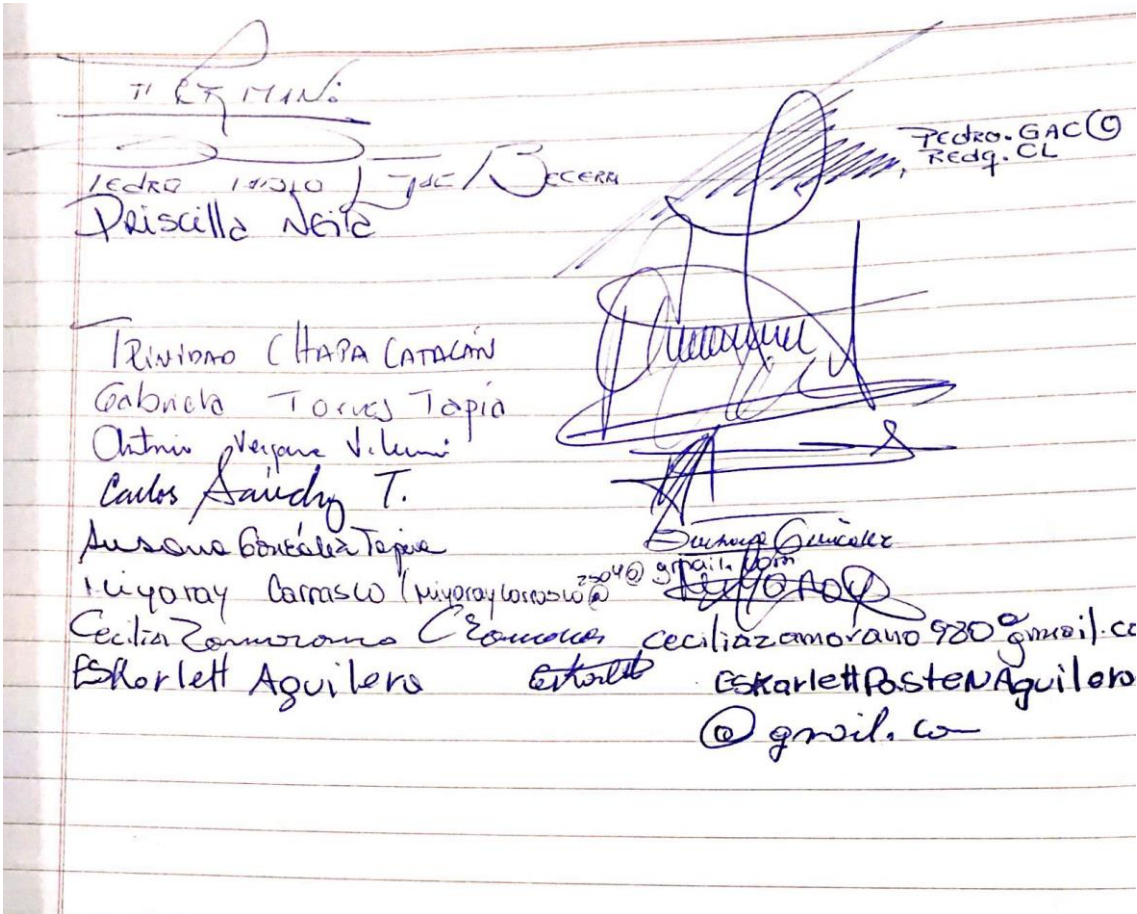 PEDRO PABLO GAC BECERRA
PEDRO.GAC@
REDQ.CL
Priscilla Neila
TRINIDAD CHAPA CATALÁN
Gabriela Torres Tapia
Antonio Vergara
Carlos Sánchez T.
Susana González Tapia
Susana González
Miyaray Carrasco (miyaraycarrasco2504@gmail.com
Cecilia Zamorano CZamorano ceciliazamorano980@gmail.co
ESKarlett Aguilera Eskarlett ESKarlettPasteNAguilera
@gmail.com